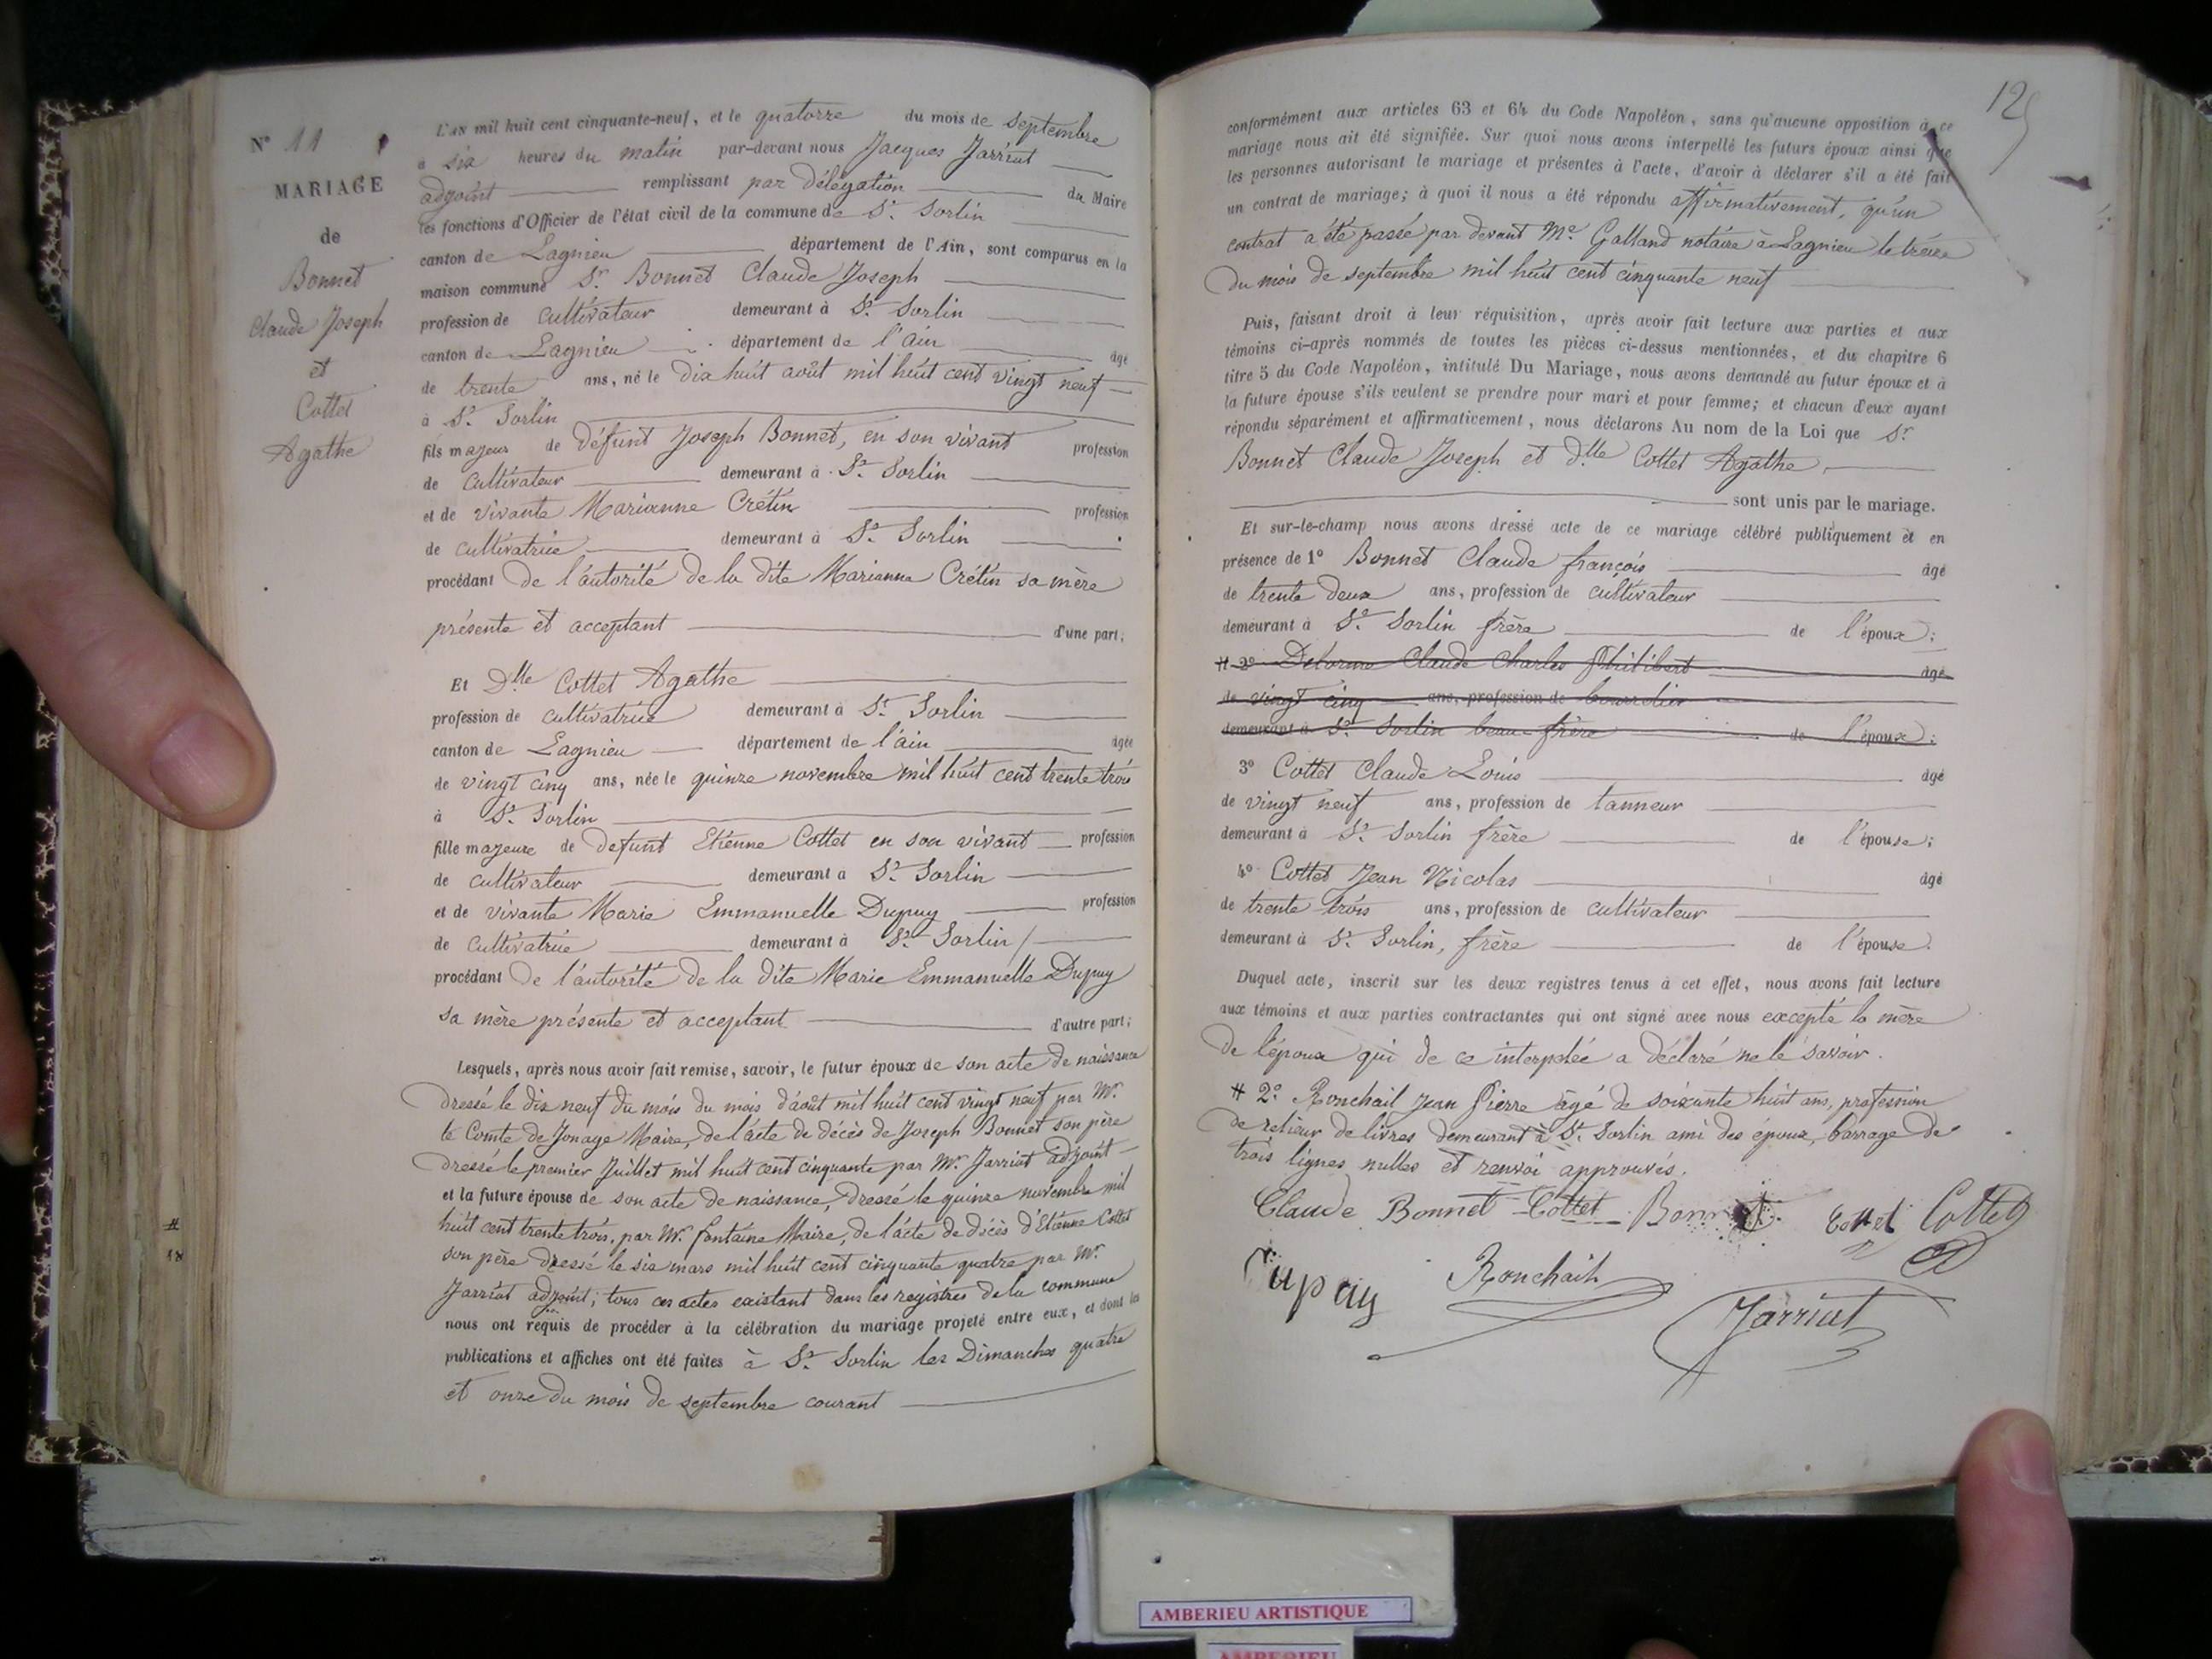 N° 11
MARIAGE
de
Bonnet
Claude Joseph
et
Cottet
Agathe
L'AN mil huit cent cinquante-neuf, et le quatorze du mois de septembre
à six heures du matin par-devant nous Jacques Jarriat
adjoint remplissant par délégation du Maire
les fonctions d'Officier de l'état civil de la commune de St. Sorlin
canton de Lagnieu département de l'Ain, sont comparus en la
maison commune Sr. Bonnet Claude Joseph
profession de cultivateur demeurant à St. Sorlin
canton de Lagnieu département de l'ain âgé
de trente ans, né le dix huit août mil huit cent vingt neuf
à St. Sorlin
fils majeur de défunt Joseph Bonnet, en son vivant profession
de cultivateur demeurant à St. Sorlin
et de vivante Marianne Crétin profession
de cultivatrice demeurant à St. Sorlin
procédant de l'autorité de la dite Marianne Crétin sa mère
présente et acceptant d'une part;
Et Dlle Cottet Agathe
profession de cultivatrice demeurant à St. Sorlin
canton de Lagnieu département de l'ain âgée
de vingt cinq ans, née le quinze novembre mil huit cent trente trois
à St. Sorlin
fille majeure de defunt Etienne Cottet en son vivant profession
de cultivateur demeurant a St. Sorlin
et de vivante Marie Emmanuelle Dupuy profession
de cultivatrice demeurant à St. Sorlin
procédant de l'autorité de la dite Marie Emmanuelle Dupuy
sa mère présente et acceptant d'autre part;
Lesquels, après nous avoir fait remise, savoir, le futur époux de son acte de naissance
dressé le dix neuf du mois du mois d'août mil huit cent vingt neuf par Mr.
le Comte de Jonage Maire, de l'acte de décès de Joseph Bonnet son père
dressé le premier Juillet mil huit cent cinquante par Mr. Jarriat adjoint
et la future épouse de son acte de naissance, dressé le quinze novembre mil
huit cent trente trois, par Mr. fontaine Maire, de l'acte de décès d'Etienne Cottet
son père dressé le six mars mil huit cent cinquante quatre par Mr.
Jarriat adjoint; tous ces actes existant dans les registres de la commune
nous ont requis de procéder à la célébration du mariage projeté entre eux, et dont les
publications et affiches ont été faites à St. Sorlin les Dimanches quatre
et onze du mois de septembre courant
#
18
125
conformément aux articles 63 et 64 du Code Napoléon, sans qu'aucune opposition à ce
mariage nous ait été signifiée. Sur quoi nous avons interpellé les futurs époux ainsi que
les personnes autorisant le mariage et présentes à l'acte, d'avoir à déclarer s'il a été fait
un contrat de mariage; à quoi il nous a été répondu affirmativement, qu'un
contrat a été passé par devant Me. Galland notaire à Lagnieu le treize
du mois de septembre mil huit cent cinquante neuf
Puis, faisant droit à leur réquisition, après avoir fait lecture aux parties et aux
témoins ci-après nommés de toutes les pièces ci-dessus mentionnées, et du chapitre 6
titre 5 du Code Napoléon, intitulé Du Mariage, nous avons demandé au futur époux et à
la future épouse s'ils veulent se prendre pour mari et pour femme; et chacun d'eux ayant
répondu séparément et affirmativement, nous déclarons Au nom de la Loi que Sr.
Bonnet Claude Joseph et Dlle Cottet Agathe,
sont unis par le mariage.
Et sur-le-champ nous avons dressé acte de ce mariage célébré publiquement et en
présence de 1° Bonnet Claude françois âgé
de trente deux ans, profession de cultivateur
demeurant à St. Sorlin frère de l'époux;
# 2° Delorme Claude Charles Philibert âgé
de vingt cinq ans, profession de bourrelier
demeurant à St. Sorlin beau frère de l'époux;
3° Cottet Claude Louis âgé
de vingt neuf ans, profession de tanneur
demeurant à St. Sorlin frère de l'épouse;
4° Cottet Jean Nicolas âgé
de trente trois ans, profession de cultivateur
demeurant à St. Sorlin, frère de l'épouse.
Duquel acte, inscrit sur les deux registres tenus à cet effet, nous avons fait lecture
aux témoins et aux parties contractantes qui ont signé avec nous excepté la mère
de l'époux qui de ce interpelée a déclaré ne le savoir.
# 2° Ronchail Jean Pierre âgé de soixante huit ans, profession
de relieur de livres demeurant à St. Sorlin ami des époux, barrage de
trois lignes nulles et renvoi approuvés.
Claude Bonnet Cottet Bonnet Cottet Cottet
Dupuy Ronchail Jarriat
AMBERIEU ARTISTIQUE
AMBERIEU